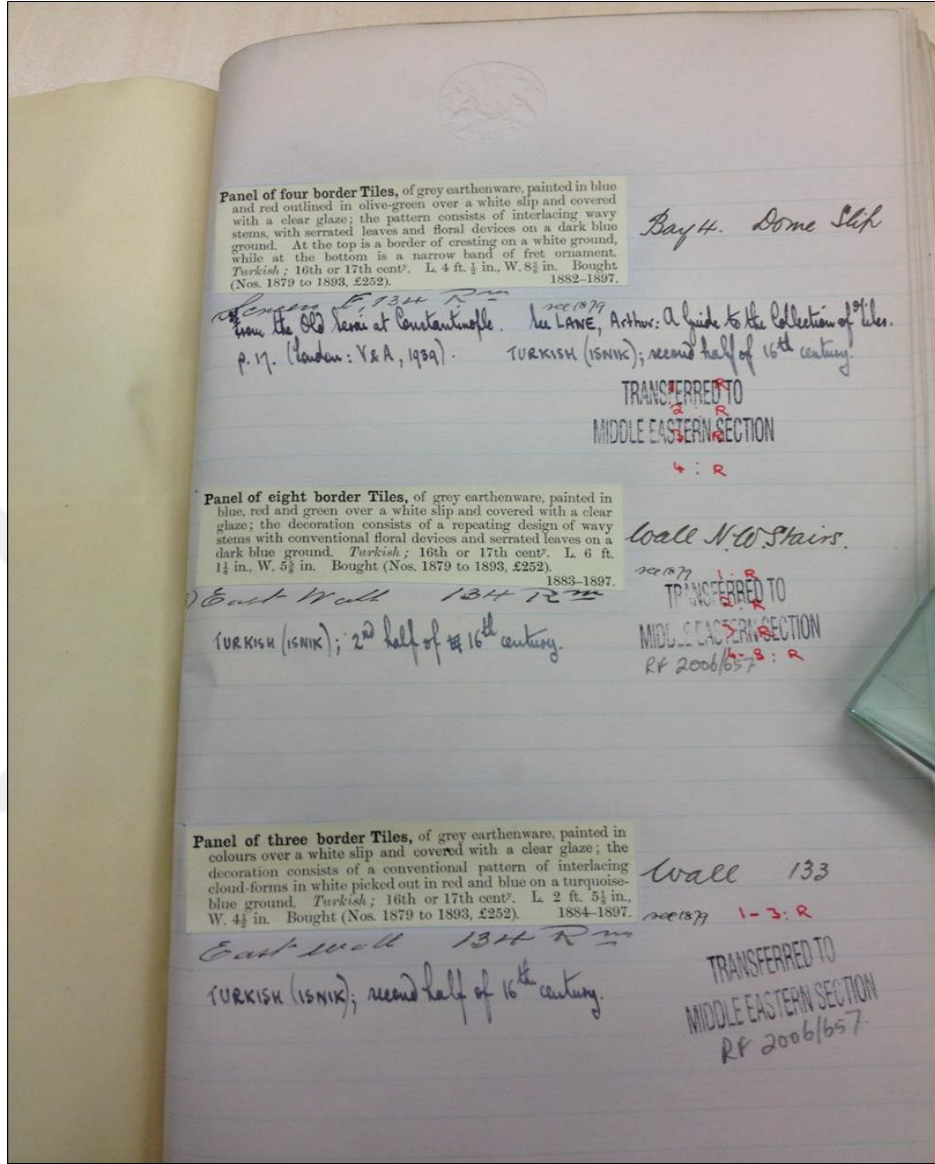 Panel of four border Tiles, of grey earthenware, painted in blue
and red outlined in olive-green over a white slip and covered
with a clear glaze; the pattern consists of interlacing wavy
stems, with serrated leaves and floral devices on a dark blue
ground. At the top is a border of cresting on a white ground,
while at the bottom is a narrow band of fret ornament.
Turkish; 16th or 17th centy. L. 4 ft. ½ in., W. 8⅝ in. Bought
(Nos. 1879 to 1893, £252). 1882-1897.
Bay 4. Dome Slip
Screen F. 134 Rm
see 1879
from the Old Serai at Constantinople. See LANE, Arthur: A Guide to the Collection of Tiles.
p. 17. (London: V & A, 1939). TURKISH (ISNIK); second half of 16th century.
TRANSFERRED TO
MIDDLE EASTERN SECTION
1 : R
2 : R
3 : R
4 : R
Panel of eight border Tiles, of grey earthenware, painted in
blue, red and green over a white slip and covered with a clear
glaze; the decoration consists of a repeating design of wavy
stems with conventional floral devices and serrated leaves on a
dark blue ground. Turkish; 16th or 17th centy. L. 6 ft.
1⅛ in., W. 5⅜ in. Bought (Nos. 1879 to 1893, £252).
1883-1897.
Wall N.W. Stairs.
see 1879
East Wall 134 Rm
TRANSFERRED TO
MIDDLE EASTERN SECTION
1 - R
2 : R
3 : R
4-8 : R
RF 2006/657
TURKISH (ISNIK); 2nd half of 16th century.
Panel of three border Tiles, of grey earthenware, painted in
colours over a white slip and covered with a clear glaze; the
decoration consists of a conventional pattern of interlacing
cloud-forms in white picked out in red and blue on a turquoise-
blue ground. Turkish; 16th or 17th centy. L. 2 ft. 5½ in.,
W. 4½ in. Bought (Nos. 1879 to 1893, £252). 1884-1897.
Wall 133
see 1879 1-3: R
East wall 134 Rm
TURKISH (ISNIK); second half of 16th century.
TRANSFERRED TO
MIDDLE EASTERN SECTION
RF 2006/657